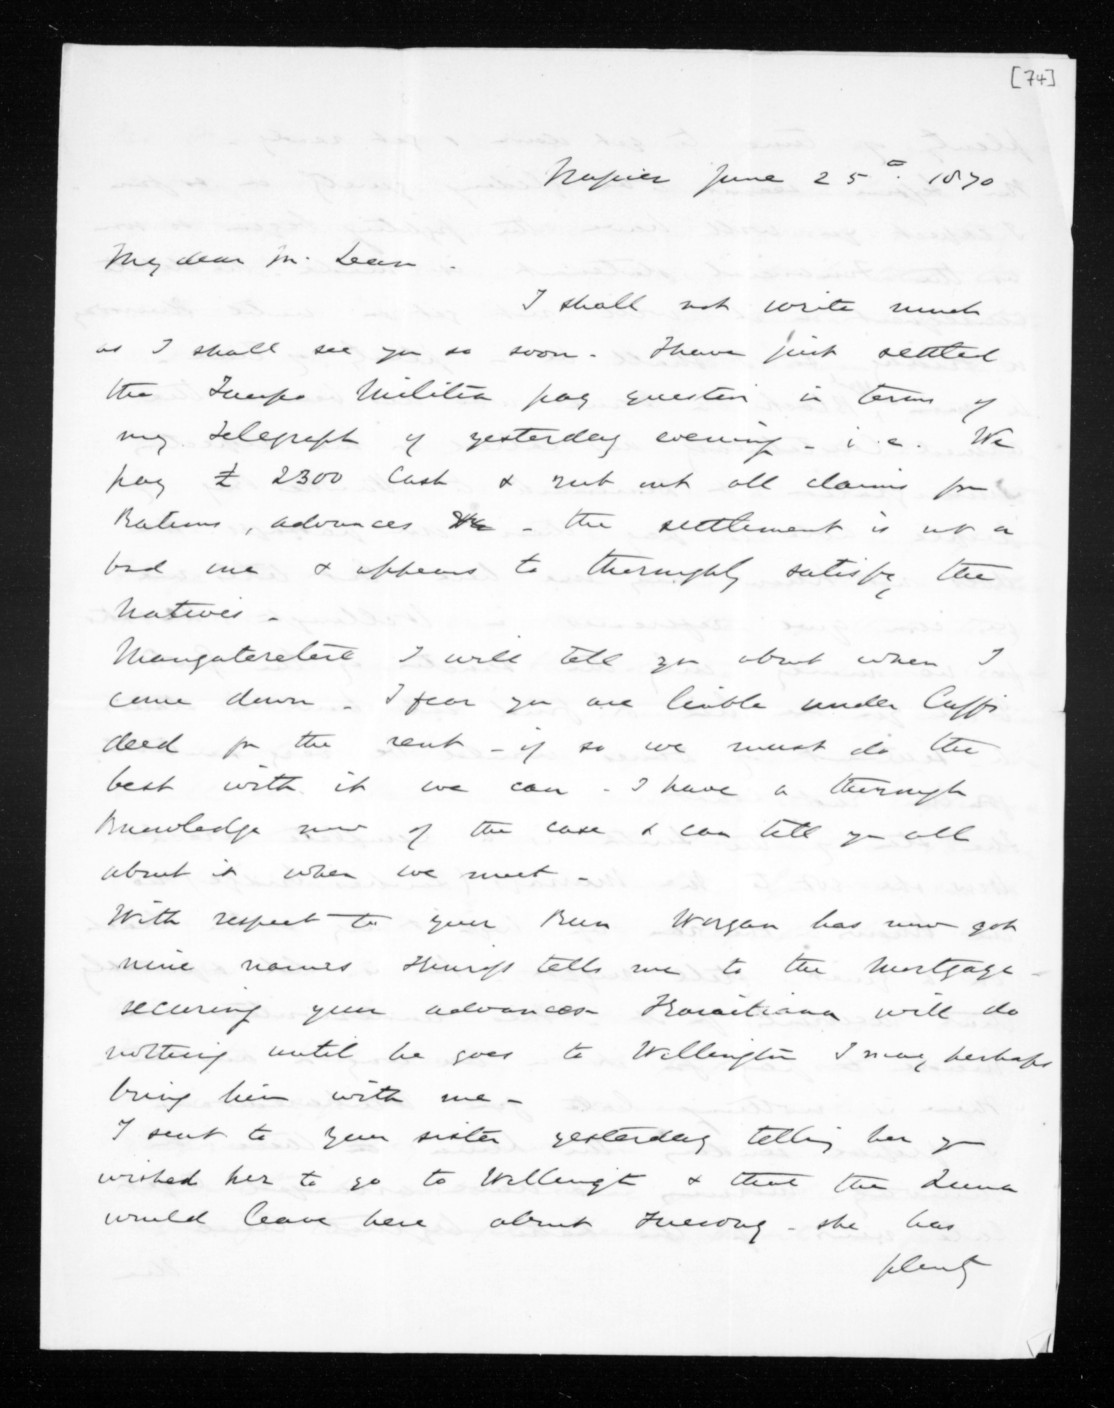 [74]
Napier June 25th. 1870
My dear Mr. Lean.
I shall not write much
as I shall see you so soon. I have just settled
the Taupo Militia pay question in terms of
my Telegraph of yesterday evening - i.e. We
pay £2300 Cash & rub out all claims for
Rations, advances &c - the settlement is not a
bad one & appears to thoroughly satisfy the
Natives -
Mangateretere I will tell you about when I
come down - I fear you are liable under Cuffs
deed for the rent - if so we must do the
best with it we can - I have a thorough
Knowledge now of the case & can tell you all
about it when we meet -
With respect to your Run Worgan has now got
nine names Heinrys tells me to the Mortgage -
securing your advances Karaitiana will do
nothing until he goes to Wellington I may perhaps
bring him with me -
I sent to your sister yesterday telling her you
wished her to go to Wellingt & that the Luna
would leave here about Tuesday - she has
plenty